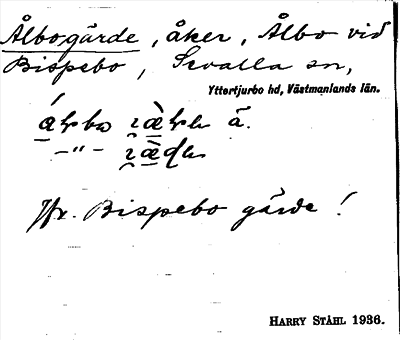 Ålbogärde, åker, Ålbo vid
Bispebo, Sevalla sn,
Yttertjurbo hd, Västmanlands län.
ä.
—"—
Jfr. Bispebo gärde!
HARRY STÅHL 1936.